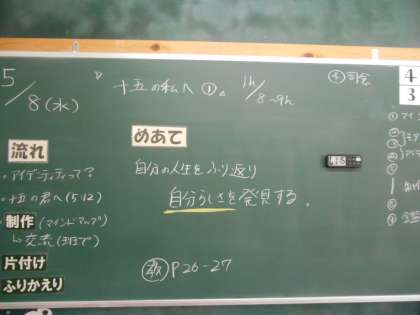 5/8(水)
十五の私へ①。
1h/8~9h
司会
4/3
流れ
・アイデンティティって?
・十五の君へ(5・12)
制作(マインドマップ)
↳交流(3班で)
片付け
ふりかえり
めあて
自分の人生をふり返り
自分らしさを発見する。
P26-27